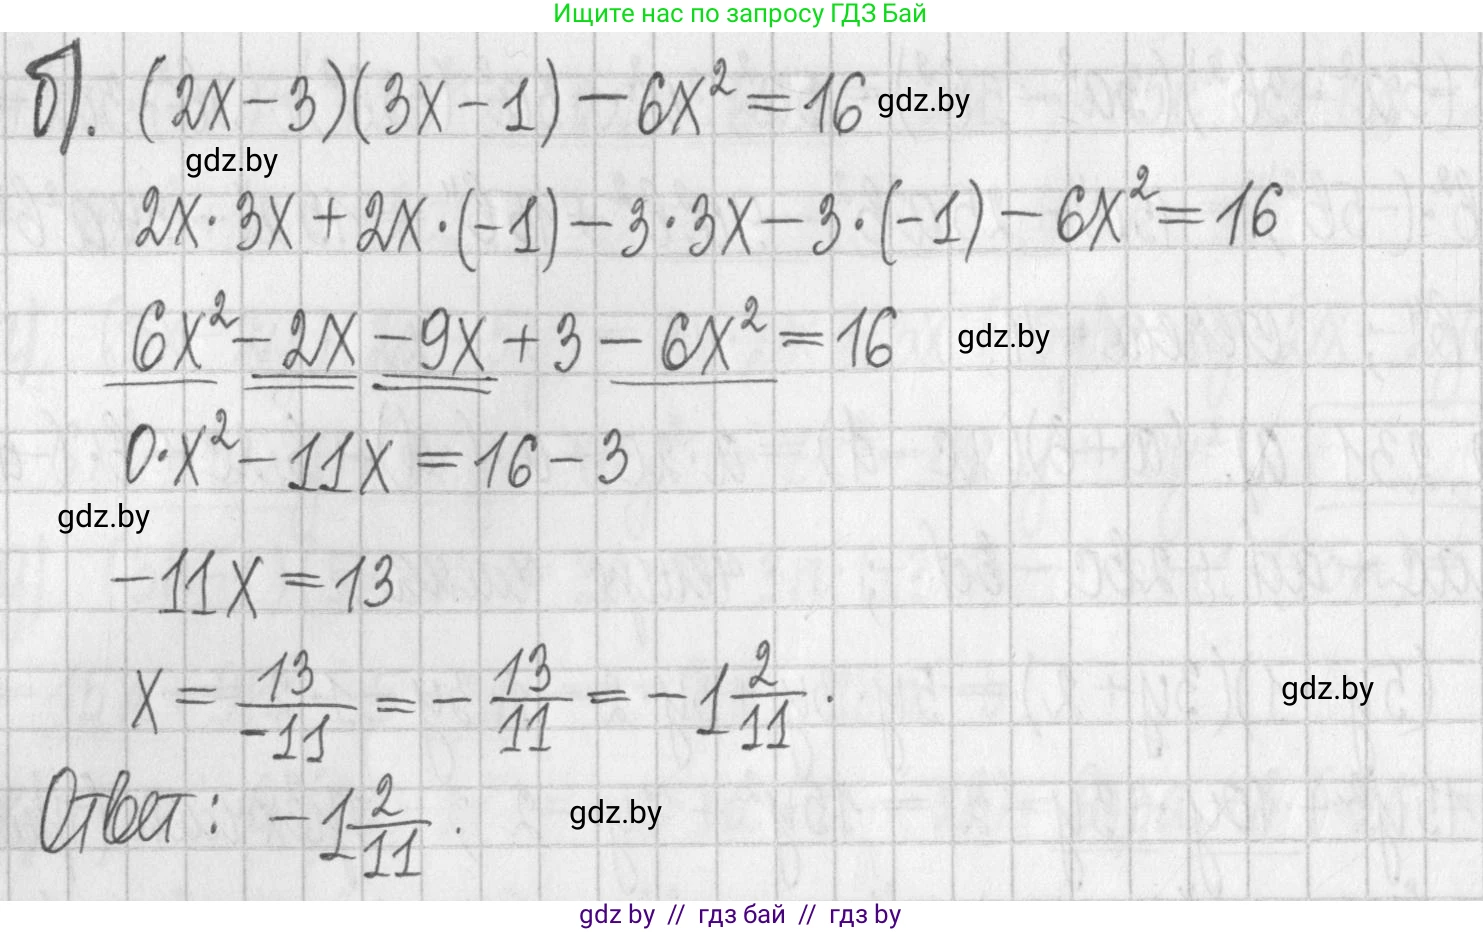 Ищите нас по запросу ГДЗ Бай
б). (2x-3)(3x-1)-6x²=16 gdz.by
gdz.by
2x·3x+2x·(-1)-3·3x-3·(-1)-6x²=16
6x²-2x-9x+3-6x²=16 gdz.by
0·x²-11x=16-3
gdz.by
-11x=13
x=13/-11=-13/11=-1 2/11. gdz.by
Ответ: -1 2/11. gdz.by
gdz by // гдз бай // гдз by